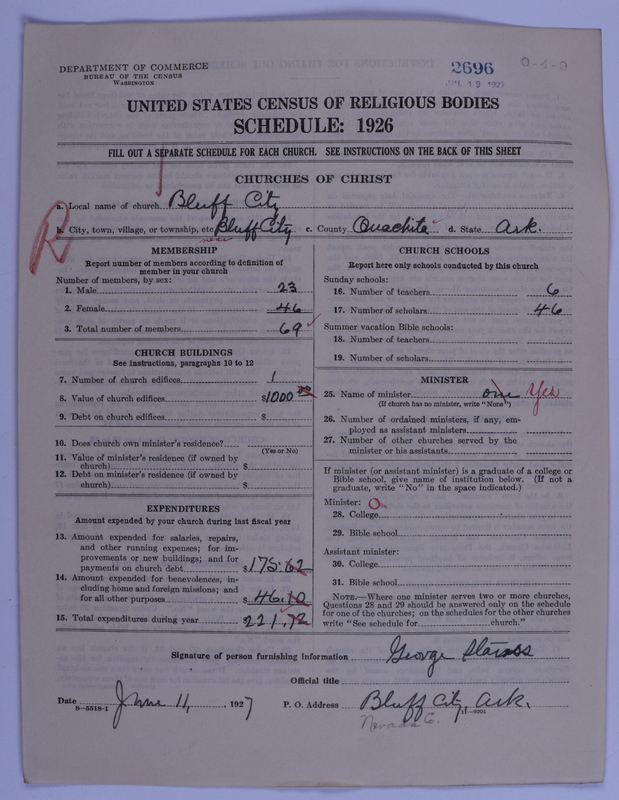 DEPARTMENT OF COMMERCE
BUREAU OF THE CENSUS
WASHINGTON
2696
JUN 19 1927
0-4-0
UNITED STATES CENSUS OF RELIGIOUS BODIES
SCHEDULE: 1926
FILL OUT A SEPARATE SCHEDULE FOR EACH CHURCH. SEE INSTRUCTIONS ON THE BACK OF THIS SHEET
CHURCHES OF CHRIST
a. Local name of church Bluff City
R
b. City, town, village, or township, etc. Bluff City c. County Ouachita d. State Ark.
near
MEMBERSHIP
Report number of members according to definition of
member in your church
Number of members, by sex:
1. Male 23
2. Female 46
3. Total number of members 69
CHURCH BUILDINGS
See instructions, paragraphs 10 to 12
7. Number of church edifices 1
8. Value of church edifices $1000 00
9. Debt on church edifices $
10. Does church own minister's residence?
(Yes or No)
11. Value of minister's residence (if owned by
church) $
12. Debt on minister's residence (if owned by
church) $
EXPENDITURES
Amount expended by your church during last fiscal year
13. Amount expended for salaries, repairs,
and other running expenses; for im-
provements or new buildings; and for
payments on church debt $175.62
14. Amount expended for benevolences, in-
cluding home and foreign missions; and
for all other purposes $46.10
15. Total expenditures during year 221.72
CHURCH SCHOOLS
Report here only schools conducted by this church
Sunday schools:
16. Number of teachers 6
17. Number of scholars 46
Summer vacation Bible schools:
18. Number of teachers
19. Number of scholars
MINISTER
25. Name of minister one Yes
(If church has no minister, write "None")
26. Number of ordained ministers, if any, em-
ployed as assistant ministers
27. Number of other churches served by the
minister or his assistants
If minister (or assistant minister) is a graduate of a college or
Bible school, give name of institution below. (If not a
graduate, write "No" in the space indicated.)
Minister: O
28. College
29. Bible school
Assistant minister:
30. College
31. Bible school
NOTE.—Where one minister serves two or more churches,
Questions 28 and 29 should be answered only on the schedule
for one of the churches; on the schedules for the other churches
write "See schedule for church."
Signature of person furnishing information George
Official title
Date June 11, 1927 P. O. Address Bluff City, Ark.
8—5518-1
11—9204
Nevada Co.